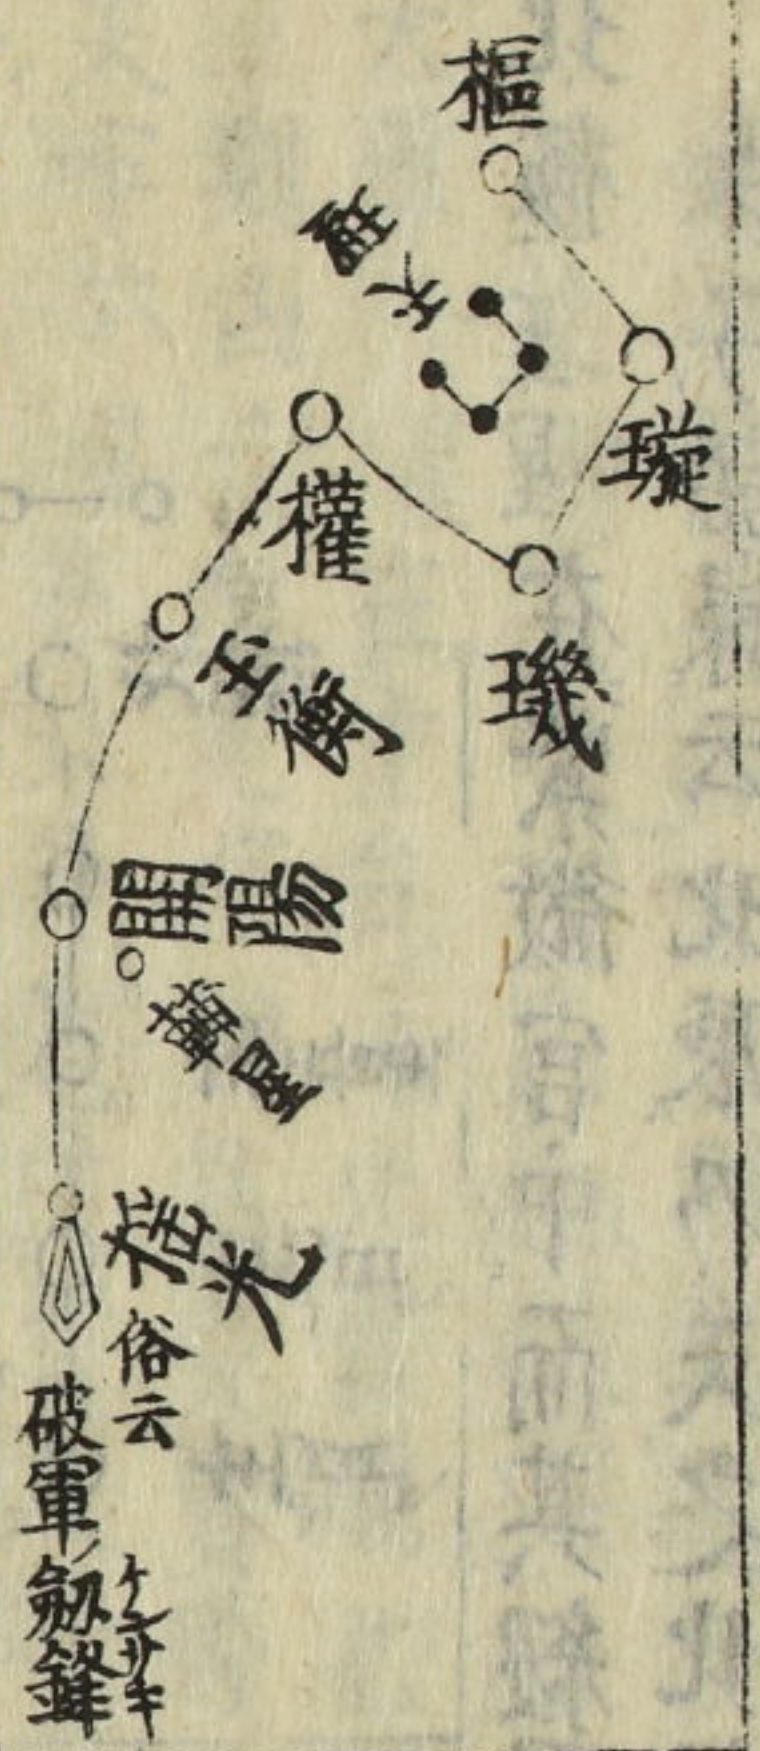 樞
璇
天理
璣
權
玉衡
開陽
輔星
揺光
俗云
破軍ノ剱鋒
ケンサキ